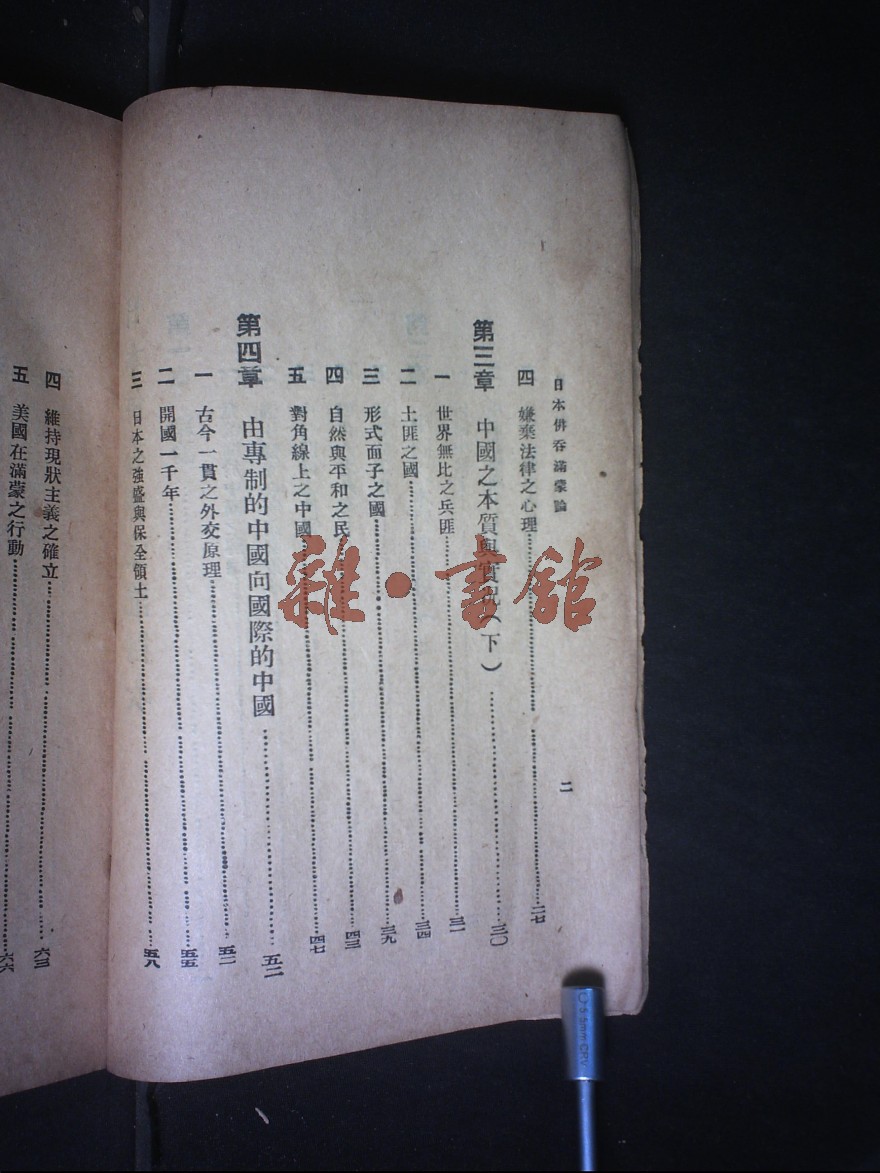 日本併吞滿蒙論
二
四 嫌棄法律之心理 二七
第三章 中國之本質與實況(下) 三〇
一 世界無比之兵匪 三一
二 土匪之國 三四
三 形式面子之國 三九
四 自然與平和之民 四三
五 對角線上之中國 四七
第四章 由專制的中國向國際的中國 五二
一 古今一貫之外交原理 五二
二 開國一千年 五五
三 日本之強盛與保全領土 五八
四 維持現狀主義之確立 六三
五 美國在滿蒙之行動 六六
雜·書館
5.5mm CRV